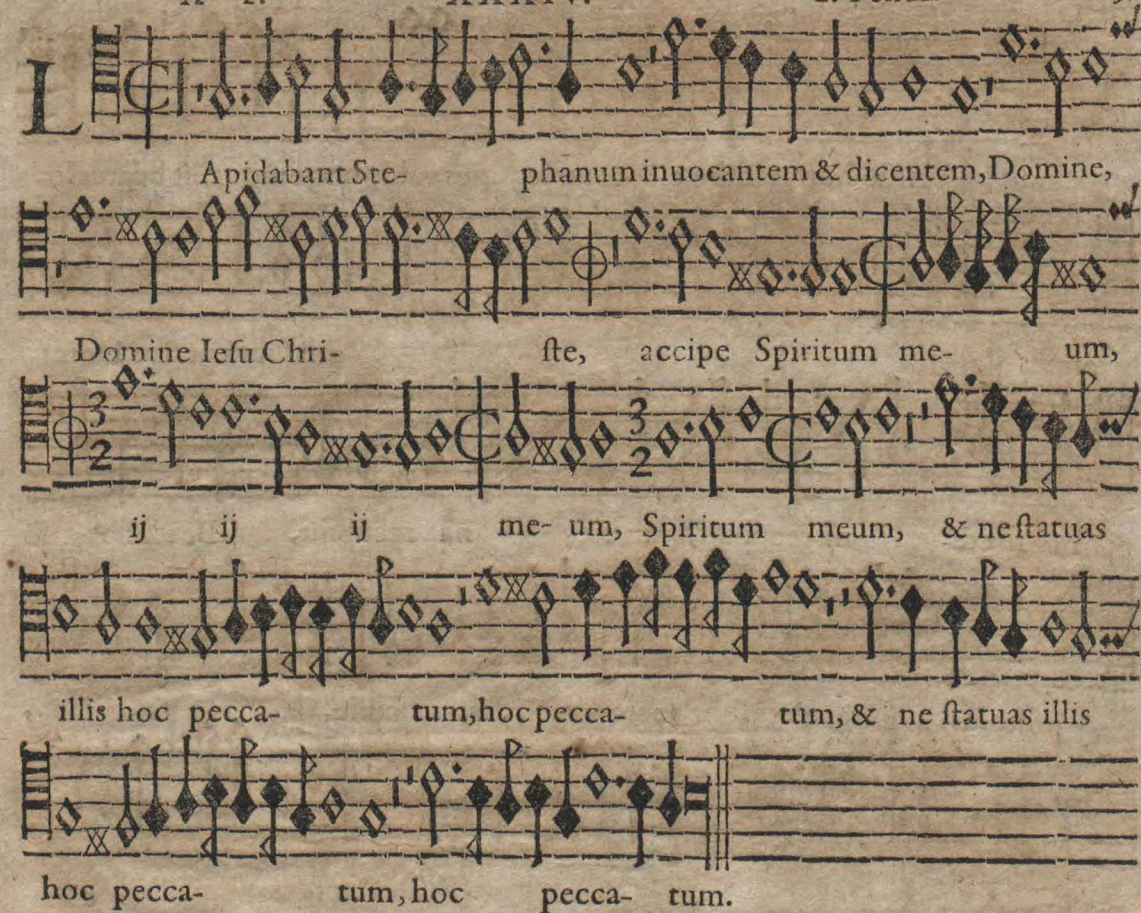 XXXIV.
L
Apidabant Ste- phanum inuocantem & dicentem, Domine,
Domine Iesu Chri- ste, accipe Spiritum me- um,
3 2 3 2
ij ij ij me- um, Spiritum meum, & ne statuas
illis hoc pecca- tum, hoc pecca- tum, & ne statuas illis
hoc pecca- tum, hoc pecca- tum.